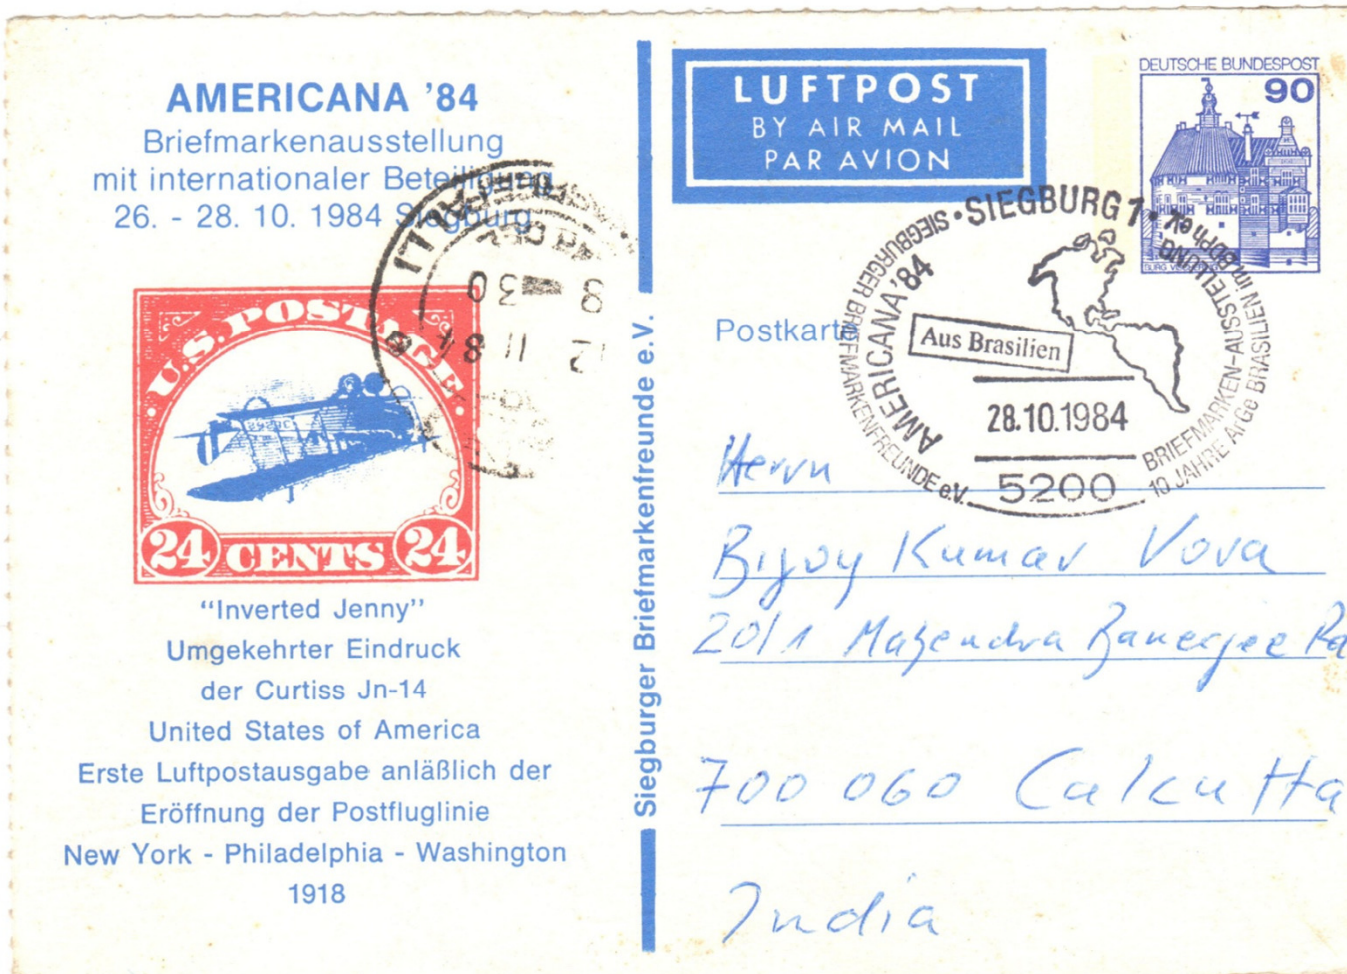 AMERICANA '84
Briefmarkenausstellung
mit internationaler Beteiligung
26. - 28. 10. 1984 Siegburg
U.S. POSTAGE
24 CENTS 24
"Inverted Jenny"
Umgekehrter Eindruck
der Curtiss Jn-14
United States of America
Erste Luftpostausgabe anläßlich der
Eröffnung der Postfluglinie
New York - Philadelphia - Washington
1918
Siegburger Briefmarkenfreunde e.V.
LUFTPOST
BY AIR MAIL
PAR AVION
DEUTSCHE BUNDESPOST
90
SIEGBURG 1
AMERICANA '84
SIEGBURGER BRIEFMARKENFREUNDE e.V.
BRIEFMARKEN-AUSSTELLUNG
10 JAHRE ArGe BRASILIEN IM BDPh eV.
Aus Brasilien
28.10.1984
5200
12 11 84
8 30
Postkarte
Herrn
Bijoy Kumar Vora
20/1 Mahendra Banerjee
700 060 Calcutta
India